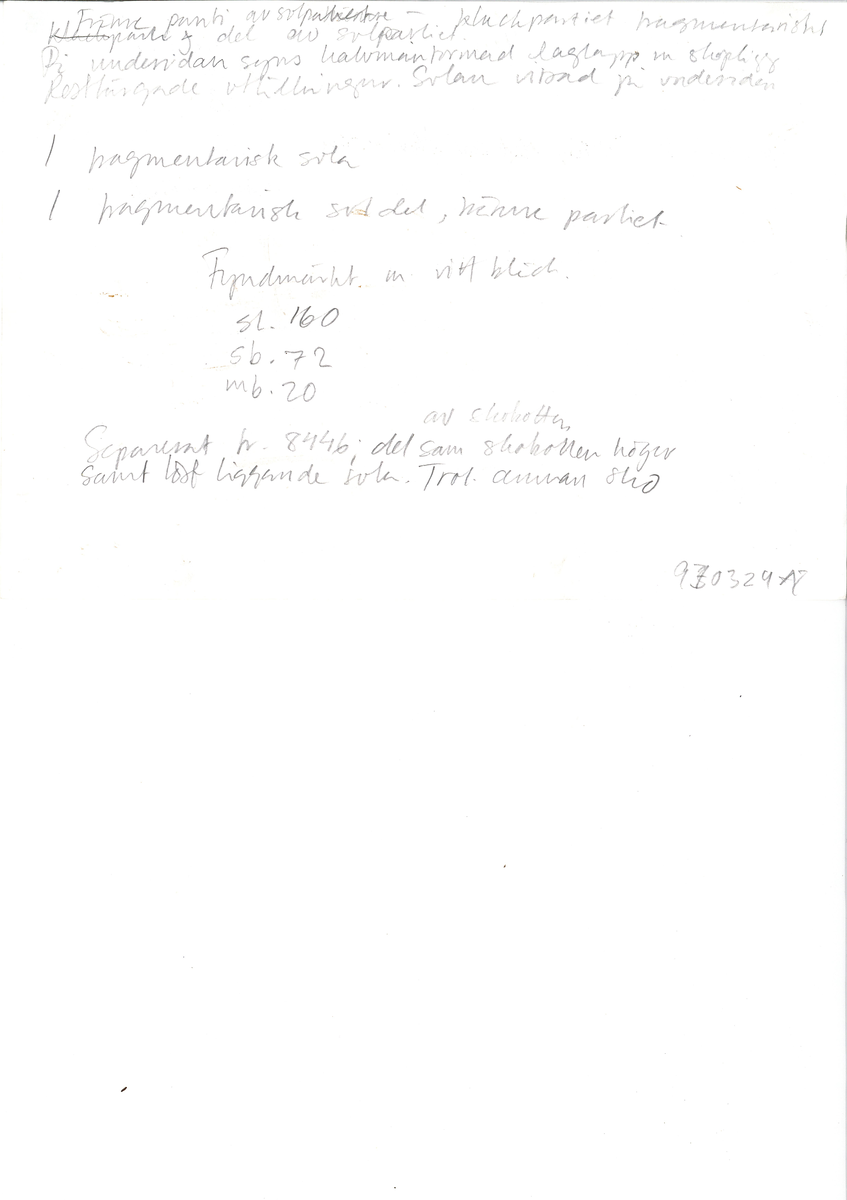 Främre parti av solpartiet – klackpartiet fragmentariskt
del av solpartiet
På undersidan syns halvmånformad laglapp m skopligg
Rostfärgade utfällningar. Sulan vitsad på undersidan
1 fragmentarisk sula
1 fragmentarisk del, främre partiet
Fyndmärkt m vitt bläck.
sl. 160
sb. 72
mb. 20
av skobotten
Separerat fr. 8446; del sam skobotten höger
samt löst liggande sula. Trol. annan sko
970324 AT